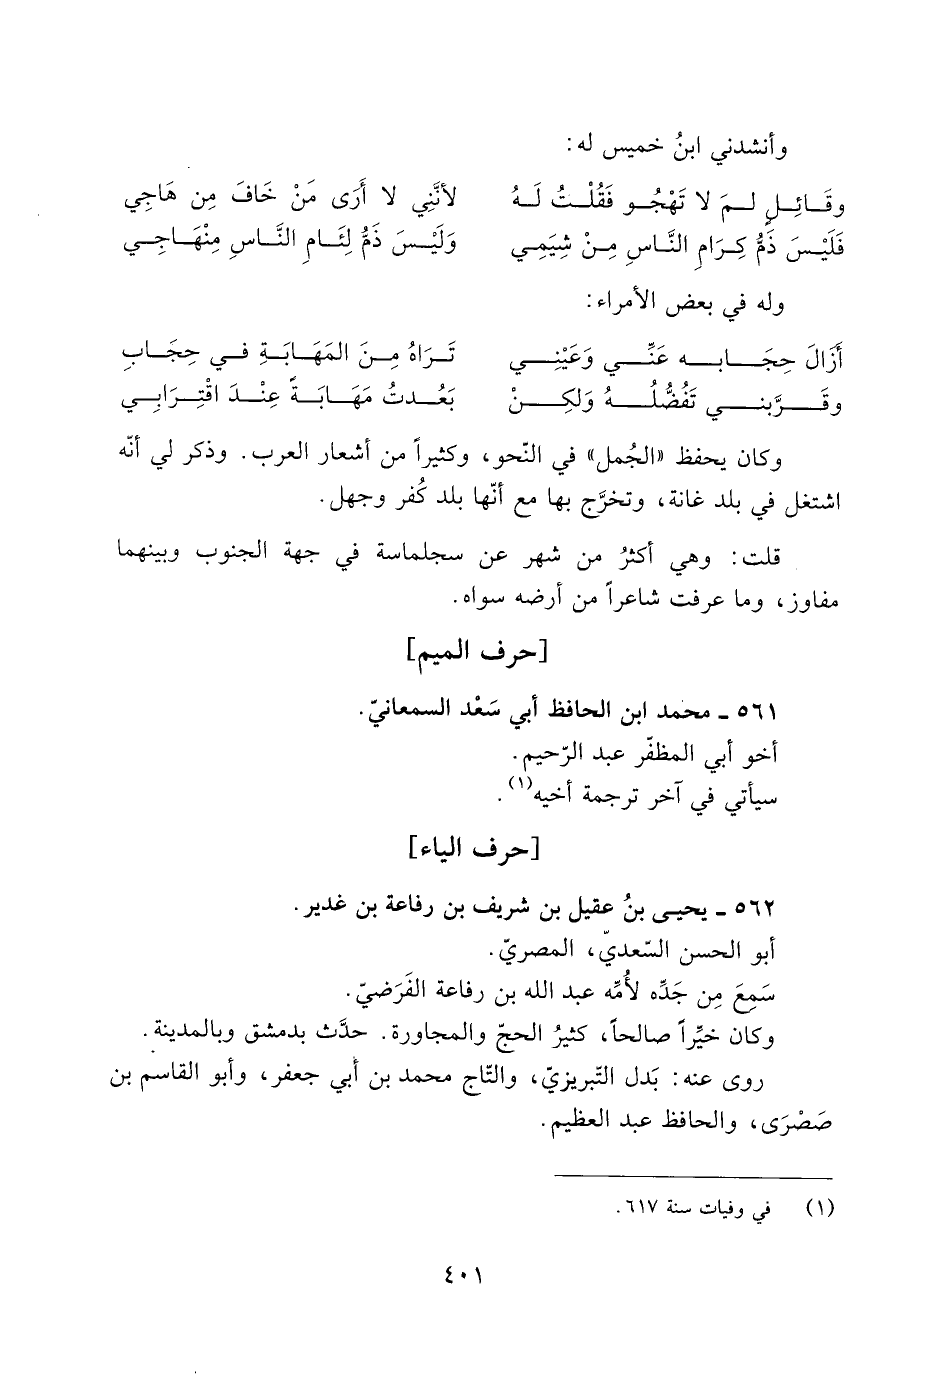 وأنشدني ابنُ خميس له:
وقَـائِـلٍ لِـمَ لا تَهْجُـو فَقُلْـتُ لَـهُ لأنَّنِي لا أَرَى مَنْ خَافَ مِن هَاجِي
فَلَيْـسَ ذَمُّ كِـرَامِ النَّاسِ مِـنْ شِيَمِـي وَلَيْـسَ ذَمُّ لِئَـامِ النَّـاسِ مِنْهَـاجِـي
وله في بعض الأمراء:
أَزَالَ حِجَـابـه عَنِّـي وَعَيْنِـي تَـرَاهُ مِـنَ المَهَـابَـةِ فـي حِجَـابِ
وقَـرَّبنـي تَفَضُّلُـهُ وَلكِـنْ بَعُـدتُ مَهَـابَـةً عِنْـدَ اقْتِـرَابِـي
وكان يحفظ «الجُمل» في النّحو، وكثيراً من أشعار العرب. وذكر لي أنّه
اشتغل في بلد غانة، وتخرَّج بها مع أنّها بلد كُفر وجهل.
قلت: وهي أكثرُ من شهر عن سجلماسة في جهة الجنوب وبينهما
مفاوز، وما عرفت شاعراً من أرضه سواه.
[حرف الميم]
٥٦١ ـ محمد ابن الحافظ أبي سَعْد السمعانيّ.
أخو أبي المظفّر عبد الرّحيم.
سيأتي في آخر ترجمة أخيه(١).
[حرف الياء]
٥٦٢ ـ يحيى بنُ عقيل بن شريف بن رفاعة بن غدير.
أبو الحسن السّعديّ، المصريّ.
سَمِعَ مِن جَدِّه لأُمِّه عبد الله بن رفاعة الفَرَضيّ.
وكان خيِّراً صالحاً، كثيرُ الحجّ والمجاورة. حدَّث بدمشق وبالمدينة.
روى عنه: بَدل التّبريزيّ، والتّاج محمد بن أبي جعفر، وأبو القاسم بن
صَصْرَى، والحافظ عبد العظيم.
(١) في وفيات سنة ٦١٧.
٤٠١